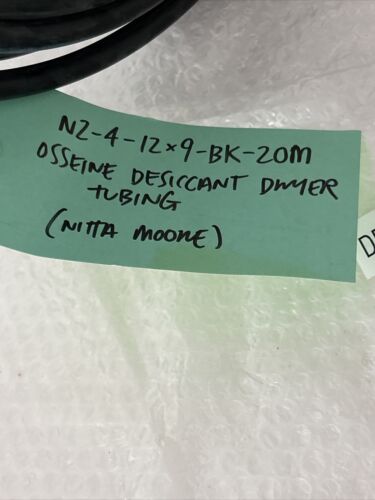 N2-4-12x9-BK-20M
OSSEINE DESICCANT DWYER
TUBING
(NITTA MOORE)
D